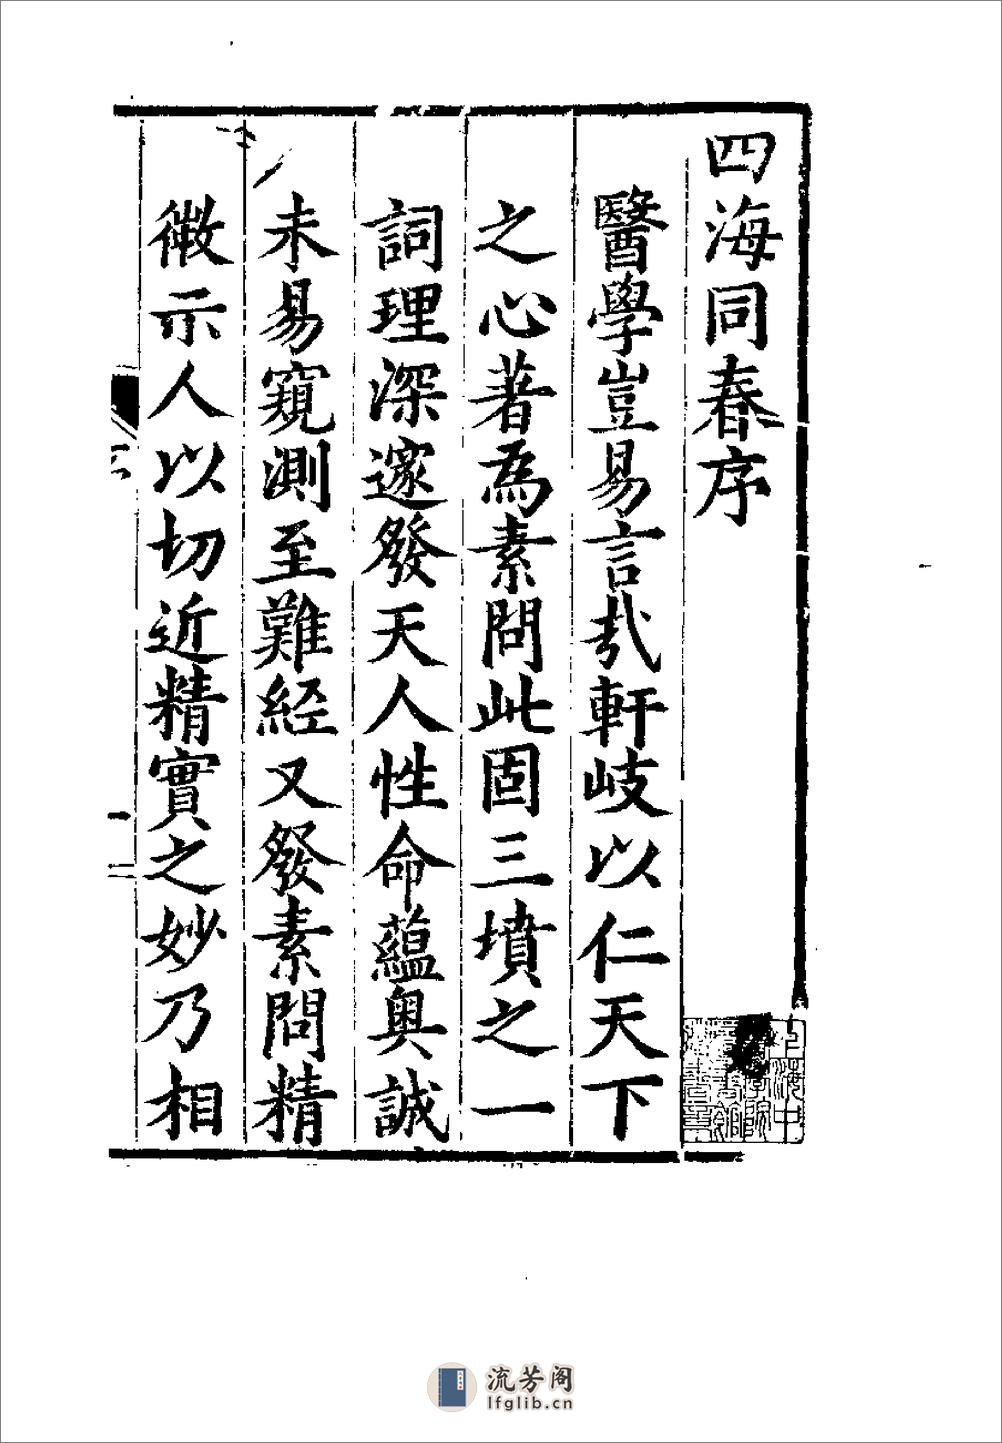 四海同春序
醫學豈易言㢤軒岐以仁天下
之心著爲素問此固三墳之一
詞理深邃發天人性命蘊奧誠
未易窺測至難經又發素問精
微示人以切近精實之妙乃相
流芳阁
lfglib.cn